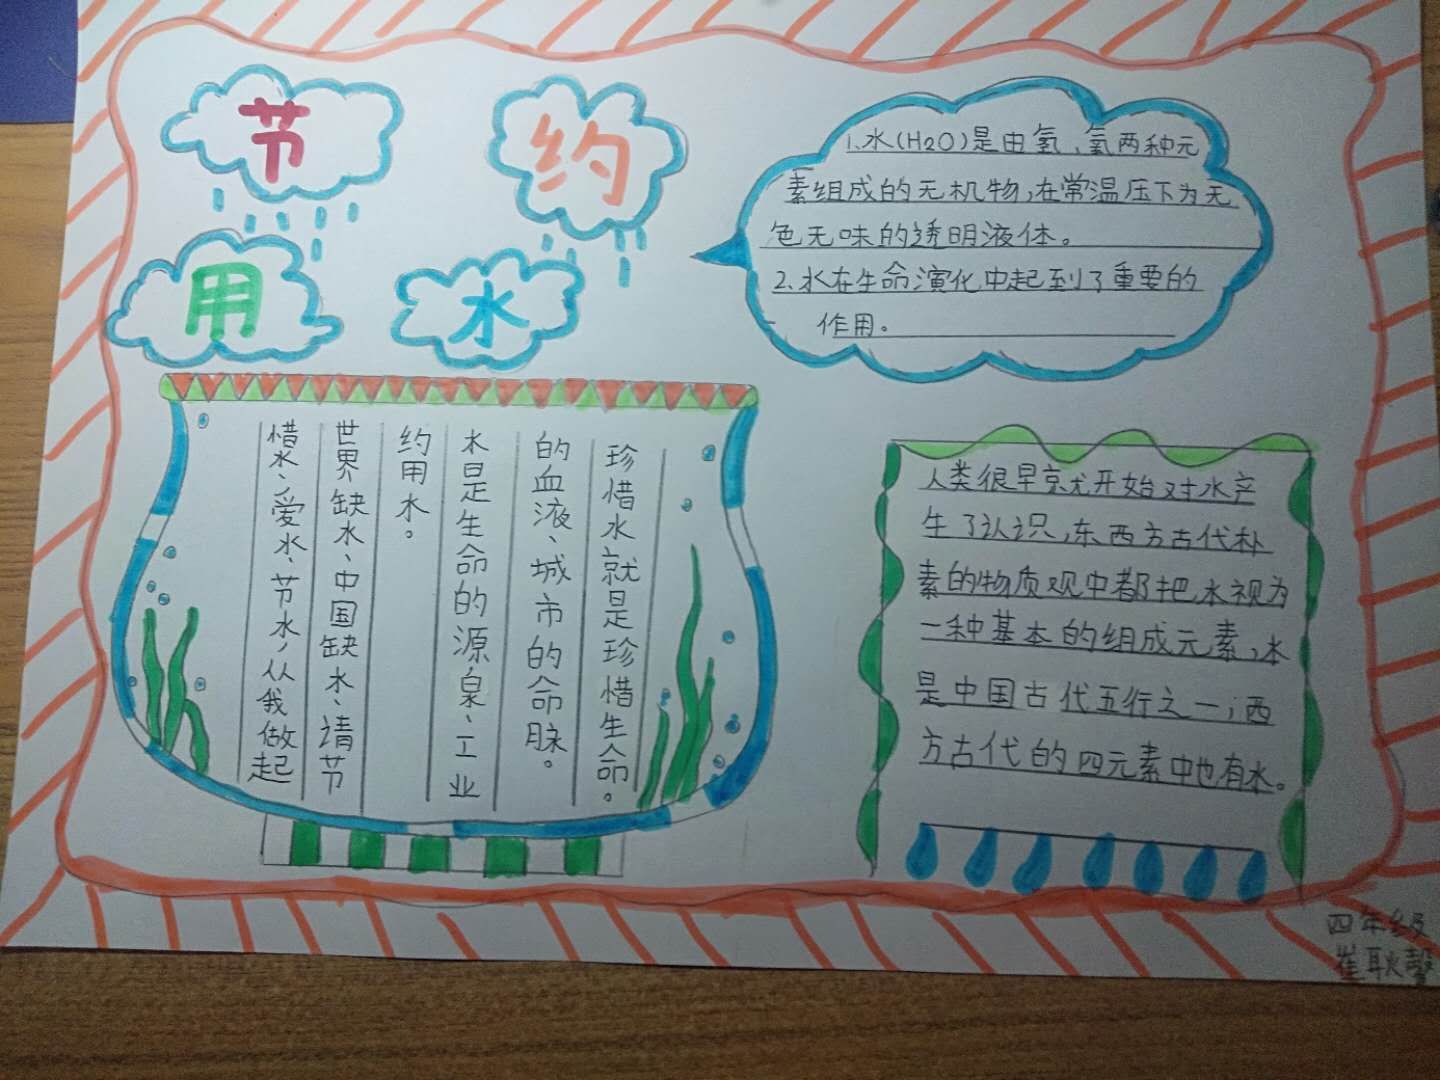 节约
用水
1.水(H2O)是由氢、氧两种元
素组成的无机物,在常温压下为无
色无味的透明液体。
2.水在生命演化中起到了重要的
作用。
珍惜水就是珍惜生命。
的血液、城市的命脉。
水是生命的源泉、工业
约用水。
世界缺水、中国缺水、请节
惜水、爱水、节水,从我做起
人类很早就开始对水产
生了认识,东西方古代朴
素的物质观中都把水视为
一种基本的组成元素,水
是中国古代五行之一;西
方古代的四元素中也有水。
四年级
崔耿馨